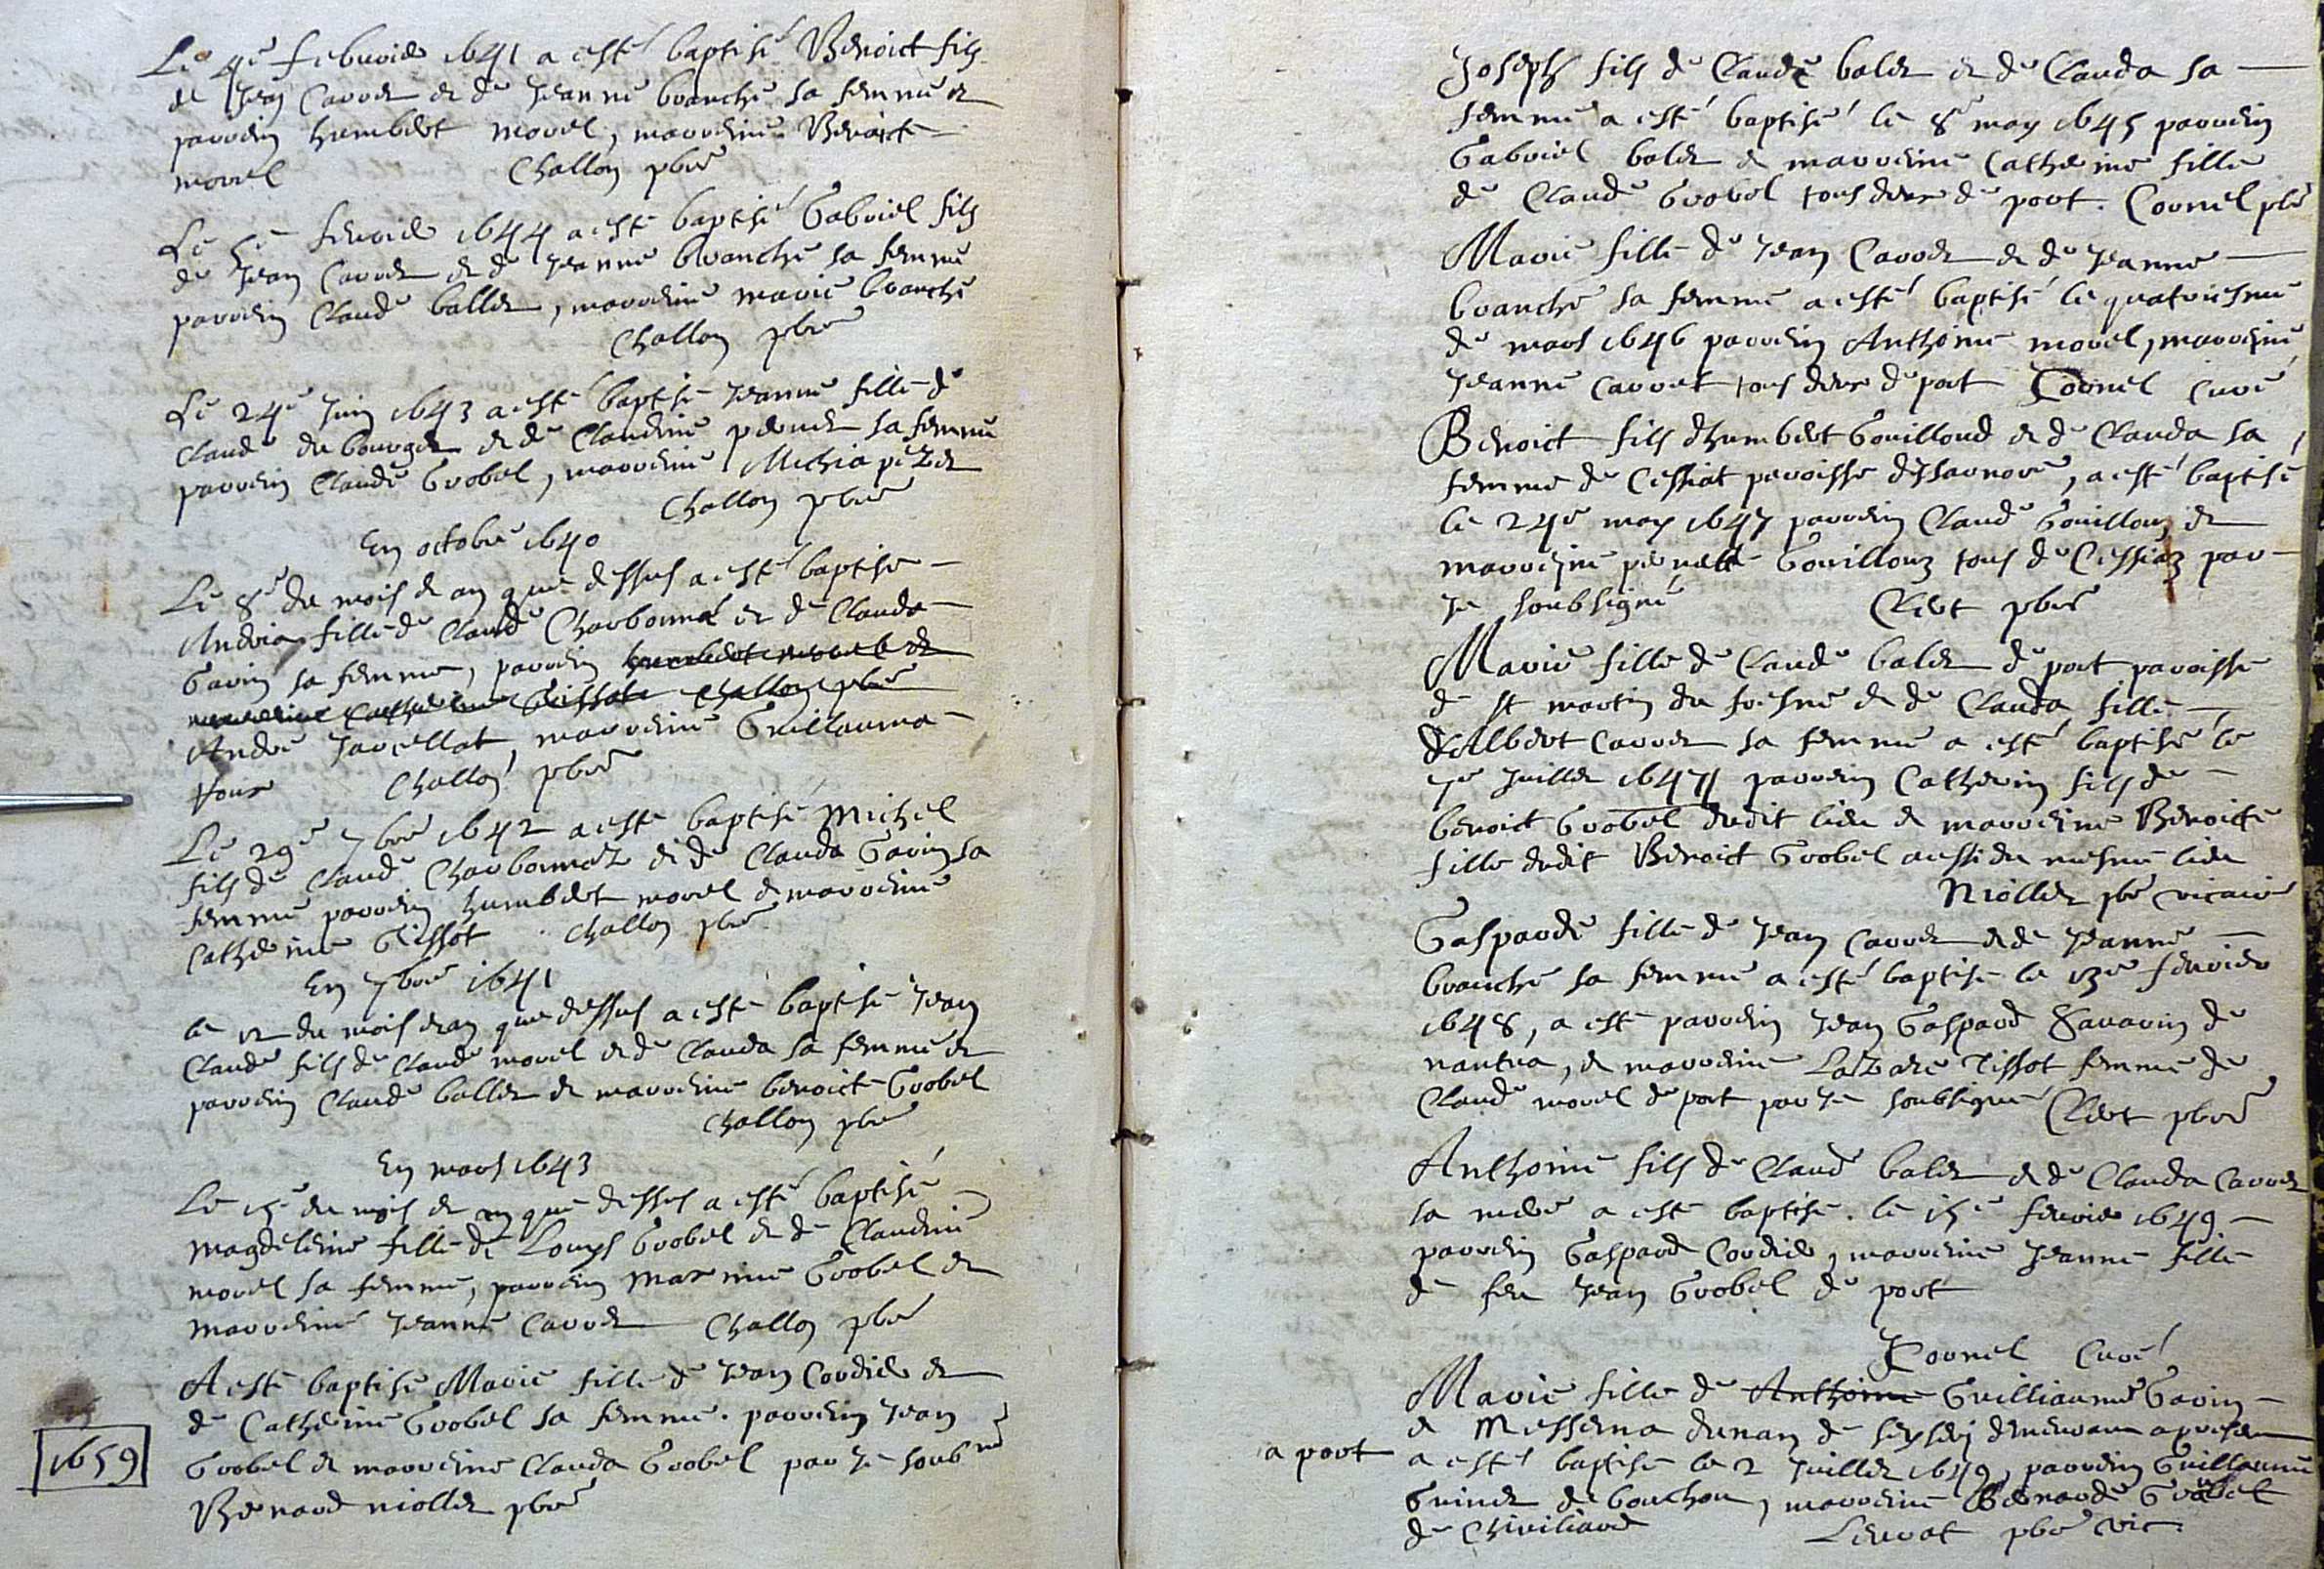 Le 4e febvrier 1641 a esté baptisé Benoict fils
de Jean Carret et de Jeanne branche sa femme et
parrein humbert morel, marreine Benoicte
morel Challon pbre
Le 5e febvrier 1644 a esté baptisé Gabriel fils
de Jean Carret et de Jeanne branche sa femme
parrein Claude ballet, marreine marie branche
Challon pbre
Le 24e Juin 1643 a esté baptisé Jeanne fille de
Claude du bourget et de Claudine pernet sa femme
parrein Claude Grobel, marreine
Challon pbre
En octobre 1640
Le 8e du mois et an que dessus a esté baptisé
Andrea fille de Claude Charbonné et de Clauda
Gavin sa femme, parrein humbert morel et
marreine Catherine Tissot Challon pbre
André Javellot, marreine Guillauma
Challon pbre
Le 29e 7bre 1642 a esté baptisé Michel
fils de Claude Charbonnet et de Clauda Gavin sa
femme parrein humbert morel et marreine
Catherine Tissot Challon pbre
En 7bre 1641
le 12 du mois et an que dessus a esté baptisé Jean
Claude fils de Claude morel et de Clauda sa femme et
parrein Claude ballet et marreine benoicte Grobel
Challon pbre
En mars 1643
Le 15e du mois et an que dessus a esté baptisé
magdeleine fille de Louys Grobel et de Claudine
morel sa femme, parrein marmue Grobel et
marreine Jeanne Carret Challon pbre
A esté baptisé Marie fille de Jean Cordier et
de Catherine Grobel sa femme. parrein Jean
Grobel et marreine Clauda Grobel par Je soubné
Bernard niollet pbre
1659
Joseph fils de Claude balet et de Clauda sa
femme a esté baptisé le 8e may 1645 parrein
Gabriel balet et marreine Catherine fille
de Claude Grobel tous deux de port. Cornel pbre
Marie fille de Jean Carret et de Jeanne
branche sa femme a esté baptisé le quatriesme
de mars 1646 parrein Anthoine morel, marreine
Jeanne Carret tous deux de port Cornel curé
Benoict fils d'humbert Gouilloud et de Clauda sa
femme de Cessiat paroisse d'Isarnore, a esté baptisé
le 24e may 1647 parrein Claude Gouillouz et
marreine pernette Gouillouz tous de Cessiaz par
Je soubsigné Clert pbre
Marie fille de Claude balet de port paroisse
de st martin du fresne et de Clauda fille
d'Albert Carret sa femme a esté baptisé le
7e Juillet 1647 parrein Catherin fils de
benoict Grobel dudit lieu et marreine Benoicte
fille dudit Benoict Grobel aussi du mesme lieu
Niollet pbre vicaire
Gasparde fille de Jean Carret et de Jeanne
branche sa femme a esté baptisé le 13e febvrier
1648, a esté parrein Jean Gaspard Savarin de
nantua, et marreine Lazare Tissot femme de
Claude morel de port par Je soubsigné Clert pbre
Anthoine fils de Claude balet et de Clauda Carret
sa mere a esté baptisé. le 15e febvrier 1649
parrein Gaspard Cordier, marreine Jeanne fille
de feu Jean Grobel de port
Cornel curé
Marie fille de Anthoine Guilliaume Gavin
et Messerna dunan de demeurant a present
a port a esté baptisé le 2 Juillet 1649, parrein Guillaume
Grinet de bouchou, marreine Bernarde Grobel
de Chiviliard Lervat pbre vic.